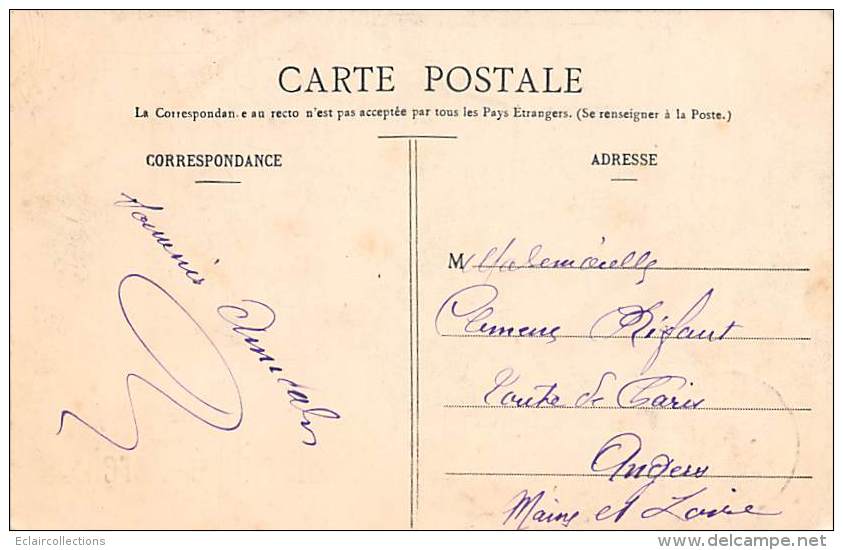 CARTE POSTALE
La Correspondan.e au recto n'est pas acceptée par tous les Pays Étrangers. (Se renseigner à la Poste.)
CORRESPONDANCE
ADRESSE
M Mademoiselle
Route de Paris
Angers
Maine et Loire
Eclaircollections
www.delcampe.net